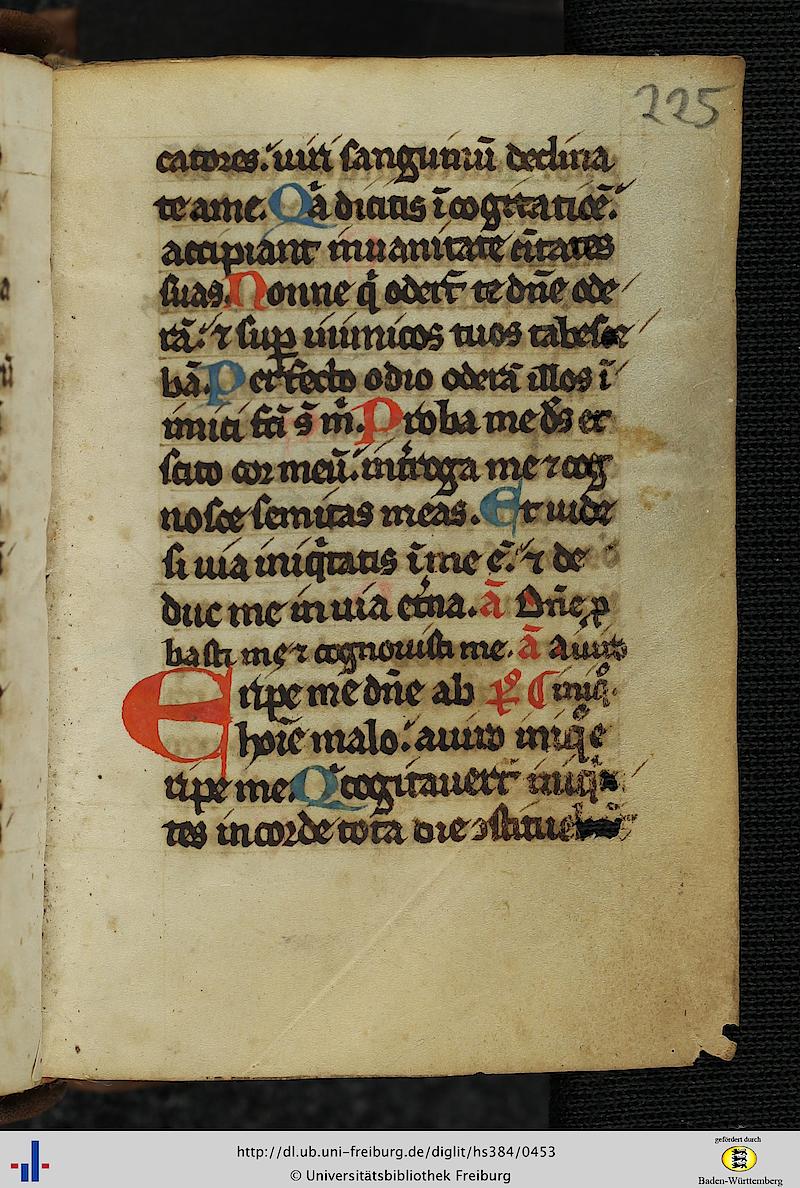 225
catores. uiri sanguinū declina
te a me. Q̄a dicitis ī cogitatiōē.
accipiant in uanitate ciuitates
suas. Nonne q̄ oderūt te dn̄e ode
rā. ⁊ suꝑ inimicos tuos tabesce
bā. Perfecto odio oderā illos ī
imici fc̄i s̄ m̄. Proba me ds̄ et
scito cor meū. int̄roga me ⁊ cog
nosce semitas meas. Et uide
si uia iniq̄tatis ī me ē. ⁊ de
duc me in uia et̄na. ā Dn̄e ꝓ
basti me ⁊ cognouisti me. ā a uiro
Eripe me dn̄e ab iniq̄.
hoīe malo. a uiro iniq̄ e
ripe me. Q cogitauerūt iniq̄ta
tes in corde tota die ꝯstitueb
http://dl.ub.uni-freiburg.de/diglit/hs384/0453
© Universitätsbibliothek Freiburg
gefördert durch
Baden-Württemberg